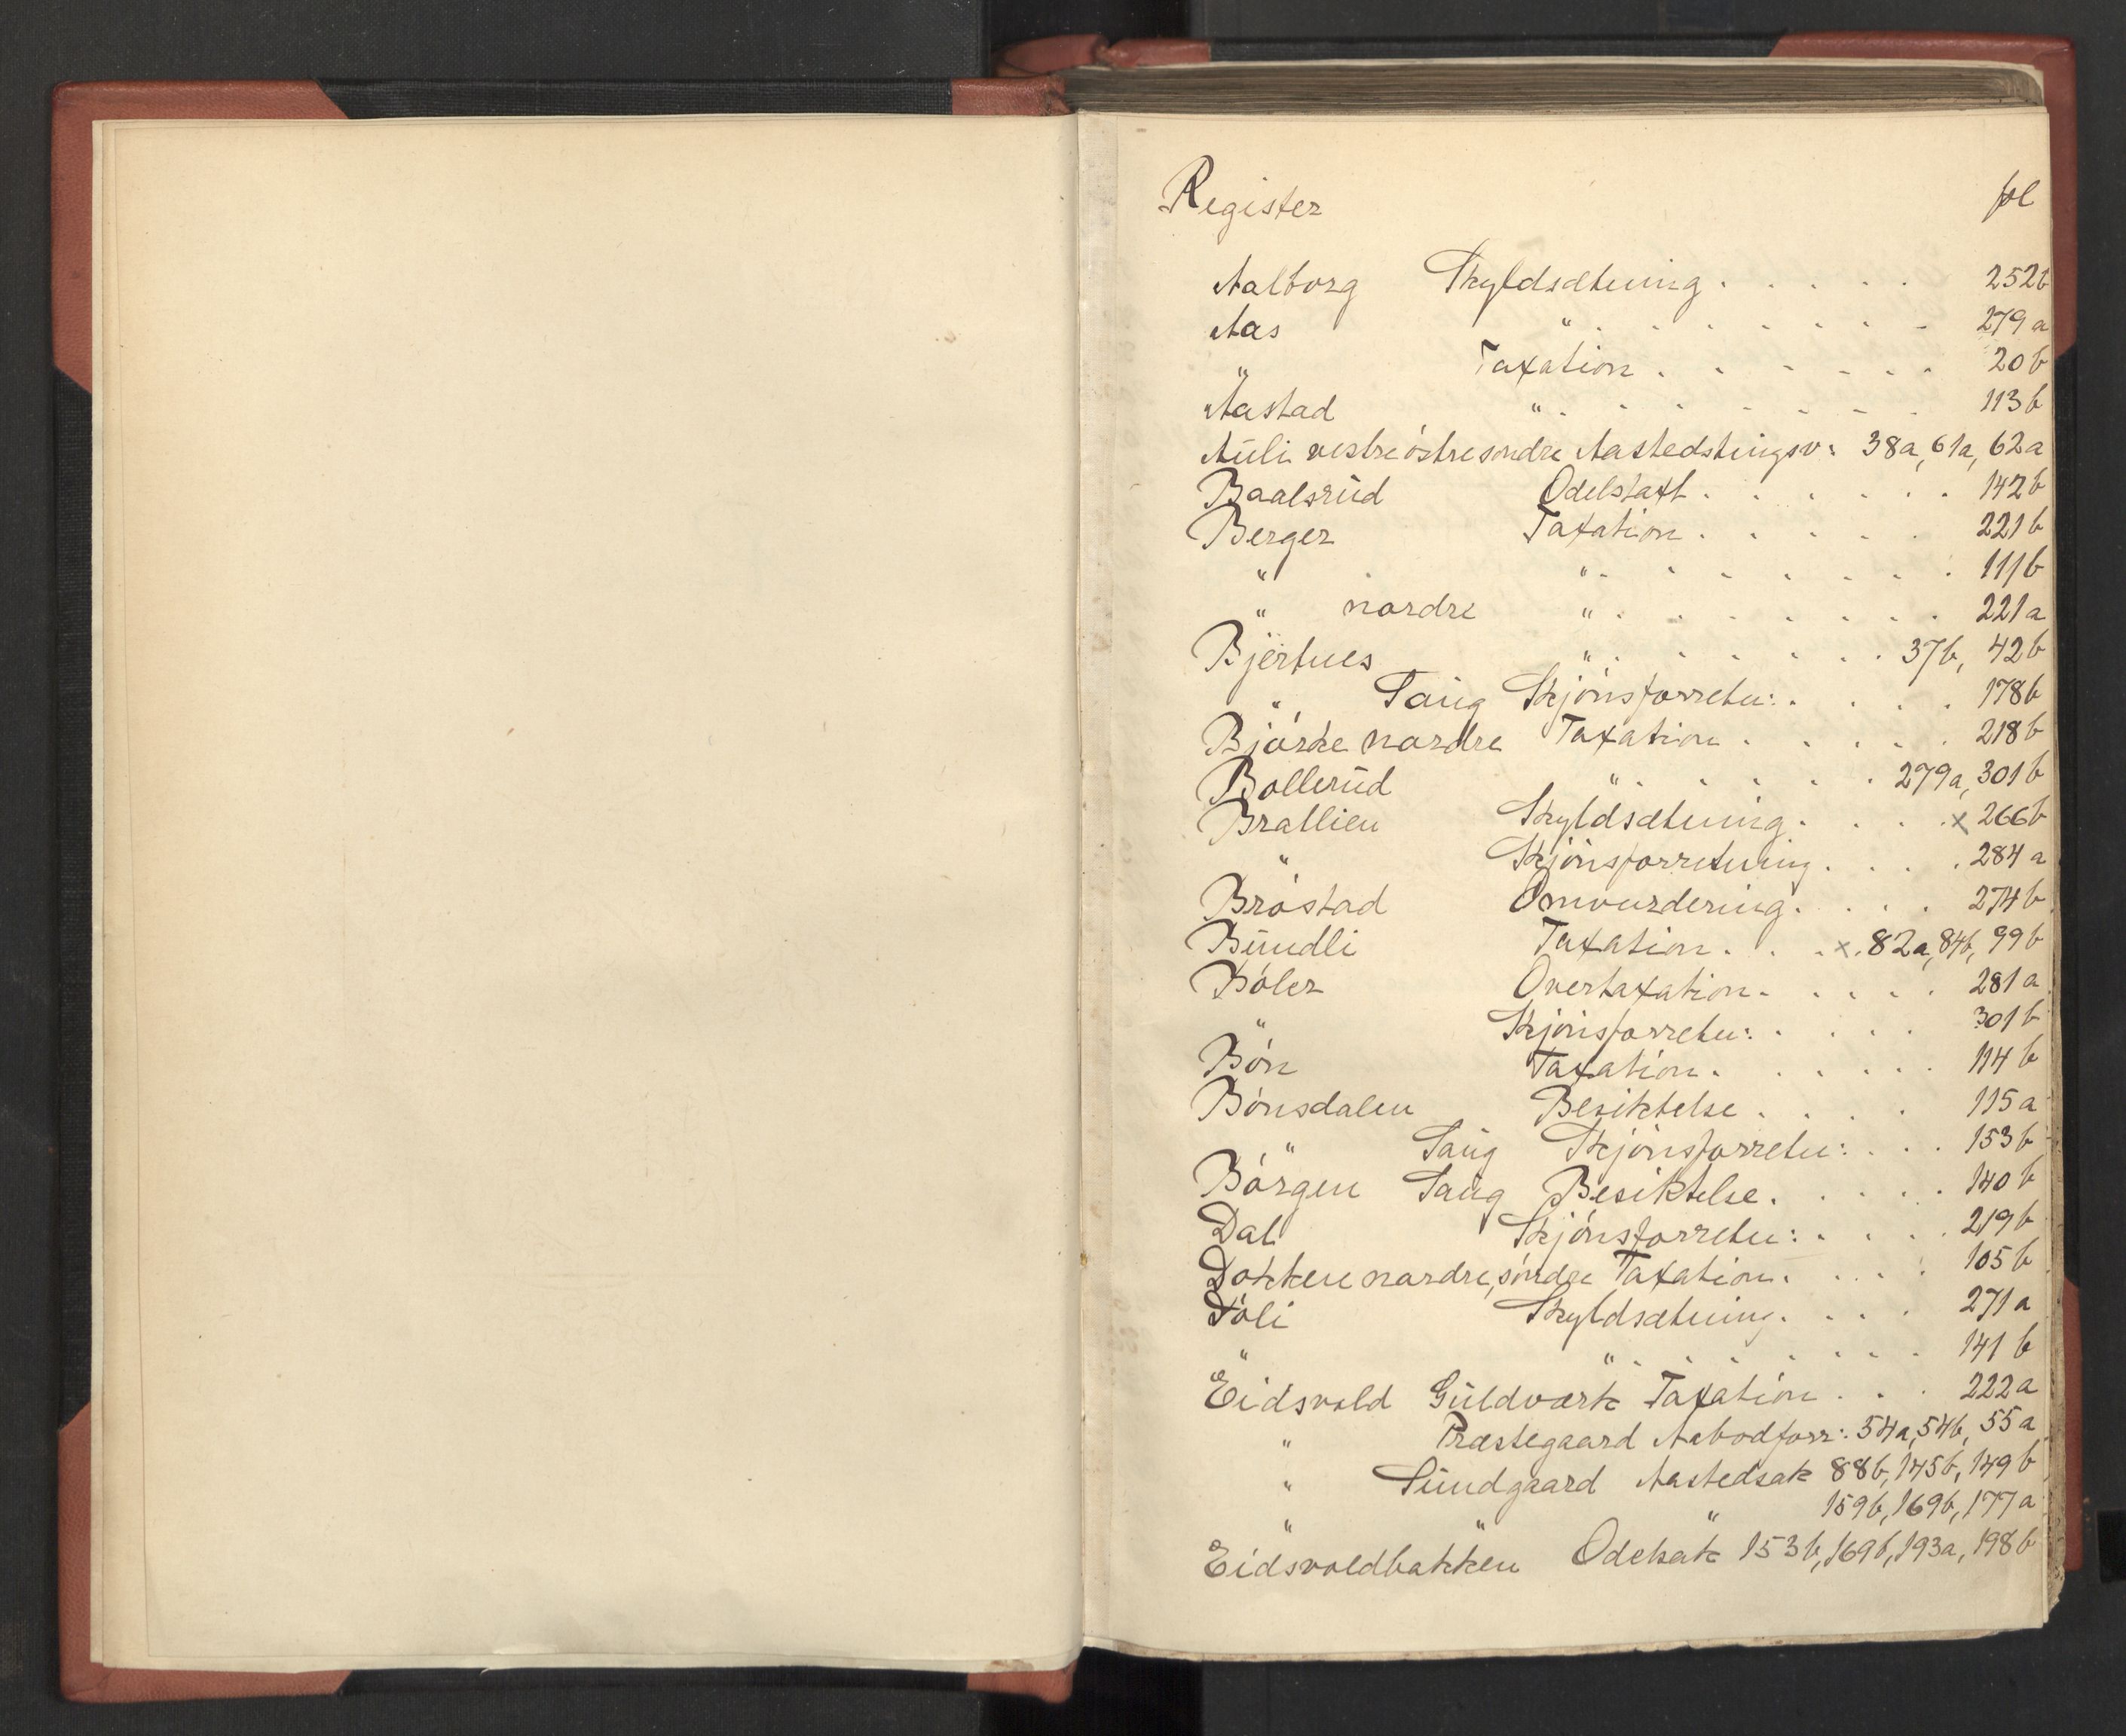 Register fol
Aalborg Skyldsætning . . . . . 252b
Aas " . . . . . . . 279a
" Taxation . . . . . . 20b
Aastad " . . . . . . . 113b
Auli vestre östre søndre Aastedstingsv: 38a, 61a, 62a
Baalsrud Odelstaxt . . . . . . 142b
Berger Taxation . . . . . 221b
" " . . . . . . . 111b
" nordre " . . . . . . . 221a
Bjertnes " . . . . . . 37b, 42b
" Saug Skjönsforretn: . . . . 178b
Bjørke nordre Taxation . . . . . 218b
Bollerud " . . . . . 279a, 301b
Brallien Skyldsætning . . . . x 266b
" Skjönsforretning . . . . 284a
Bröstad Omvurdering . . . . 274b
Bundli Taxation . . . x. 82a, 84b, 99b
Böler Overtaxation . . . . . 281a
" Skjönsforretn: . . . . 301b
Bön Taxation . . . . . . 114b
Bönsdalen Besiktelse . . . . 115a
" Saug Skjönsforretn: . . . 153b
Börgen Saug Besiktelse . . . . . 140b
Dal Skjönsforretn: . . . . 219b
Dokken nordre, söndre Taxation . . . . 105b
Döli Skyldsætning . . . . 271a
" " . . . . . . . 141b
Eidsvold Guldværk Taxation . . . 222a
" Præstegaard Aabodforr: 54a, 54b, 55a
" Sundgaard Aastedsak 88b, 145b, 149b
" " " 159b, 169b, 177a
Eidsvoldbakken Odelsak 153b, 169b, 193a, 198b